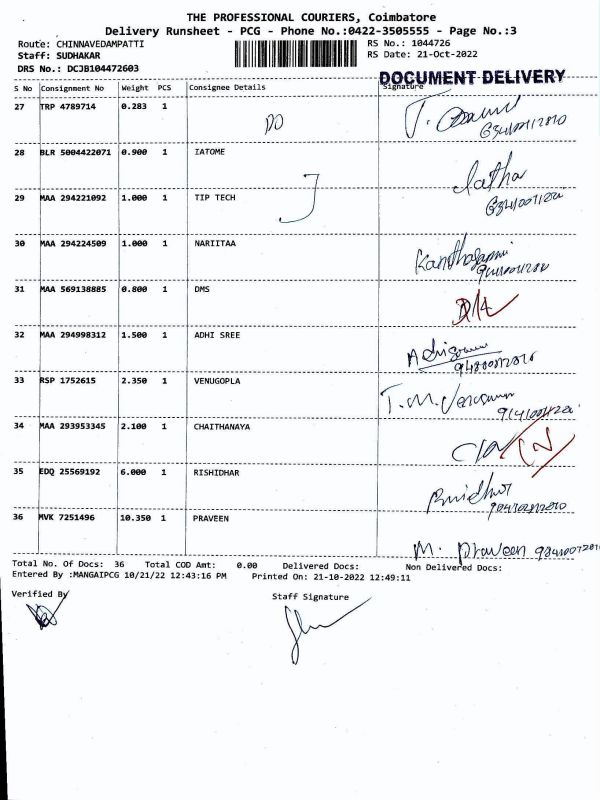 THE PROFESSIONAL COURIERS, Coimbatore
Delivery Runsheet - PCG - Phone No.:0422-3505555 - Page No.:3
Route: CHINNAVEDAMPATTI RS No.: 1044726
Staff: SUDHAKAR RS Date: 21-Oct-2022
DRS No.: DCJB104472603
DOCUMENT DELIVERY
S No Consignment No Weight PCS Consignee Details Signature
27 TRP 4789714 0.283 1
DO
28 BLR 5004422071 0.900 1 IATOME
latha
29 MAA 294221092 1.000 1 TIP TECH
30 MAA 294224509 1.000 1 NARIITAA
31 MAA 569138885 0.800 1 DMS
32 MAA 294998312 1.500 1 ADHI SREE
33 RSP 1752615 2.350 1 VENUGOPLA
T.M.
34 MAA 293953345 2.100 1 CHAITHANAYA
35 EDQ 25569192 6.000 1 RISHIDHAR
36 MVK 7251496 10.350 1 PRAVEEN
M. Praveen
Total No. Of Docs: 36 Total COD Amt: 0.00 Delivered Docs: Non Delivered Docs:
Entered By :MANGAIPCG 10/21/22 12:43:16 PM Printed On: 21-10-2022 12:49:11
Verified By Staff Signature